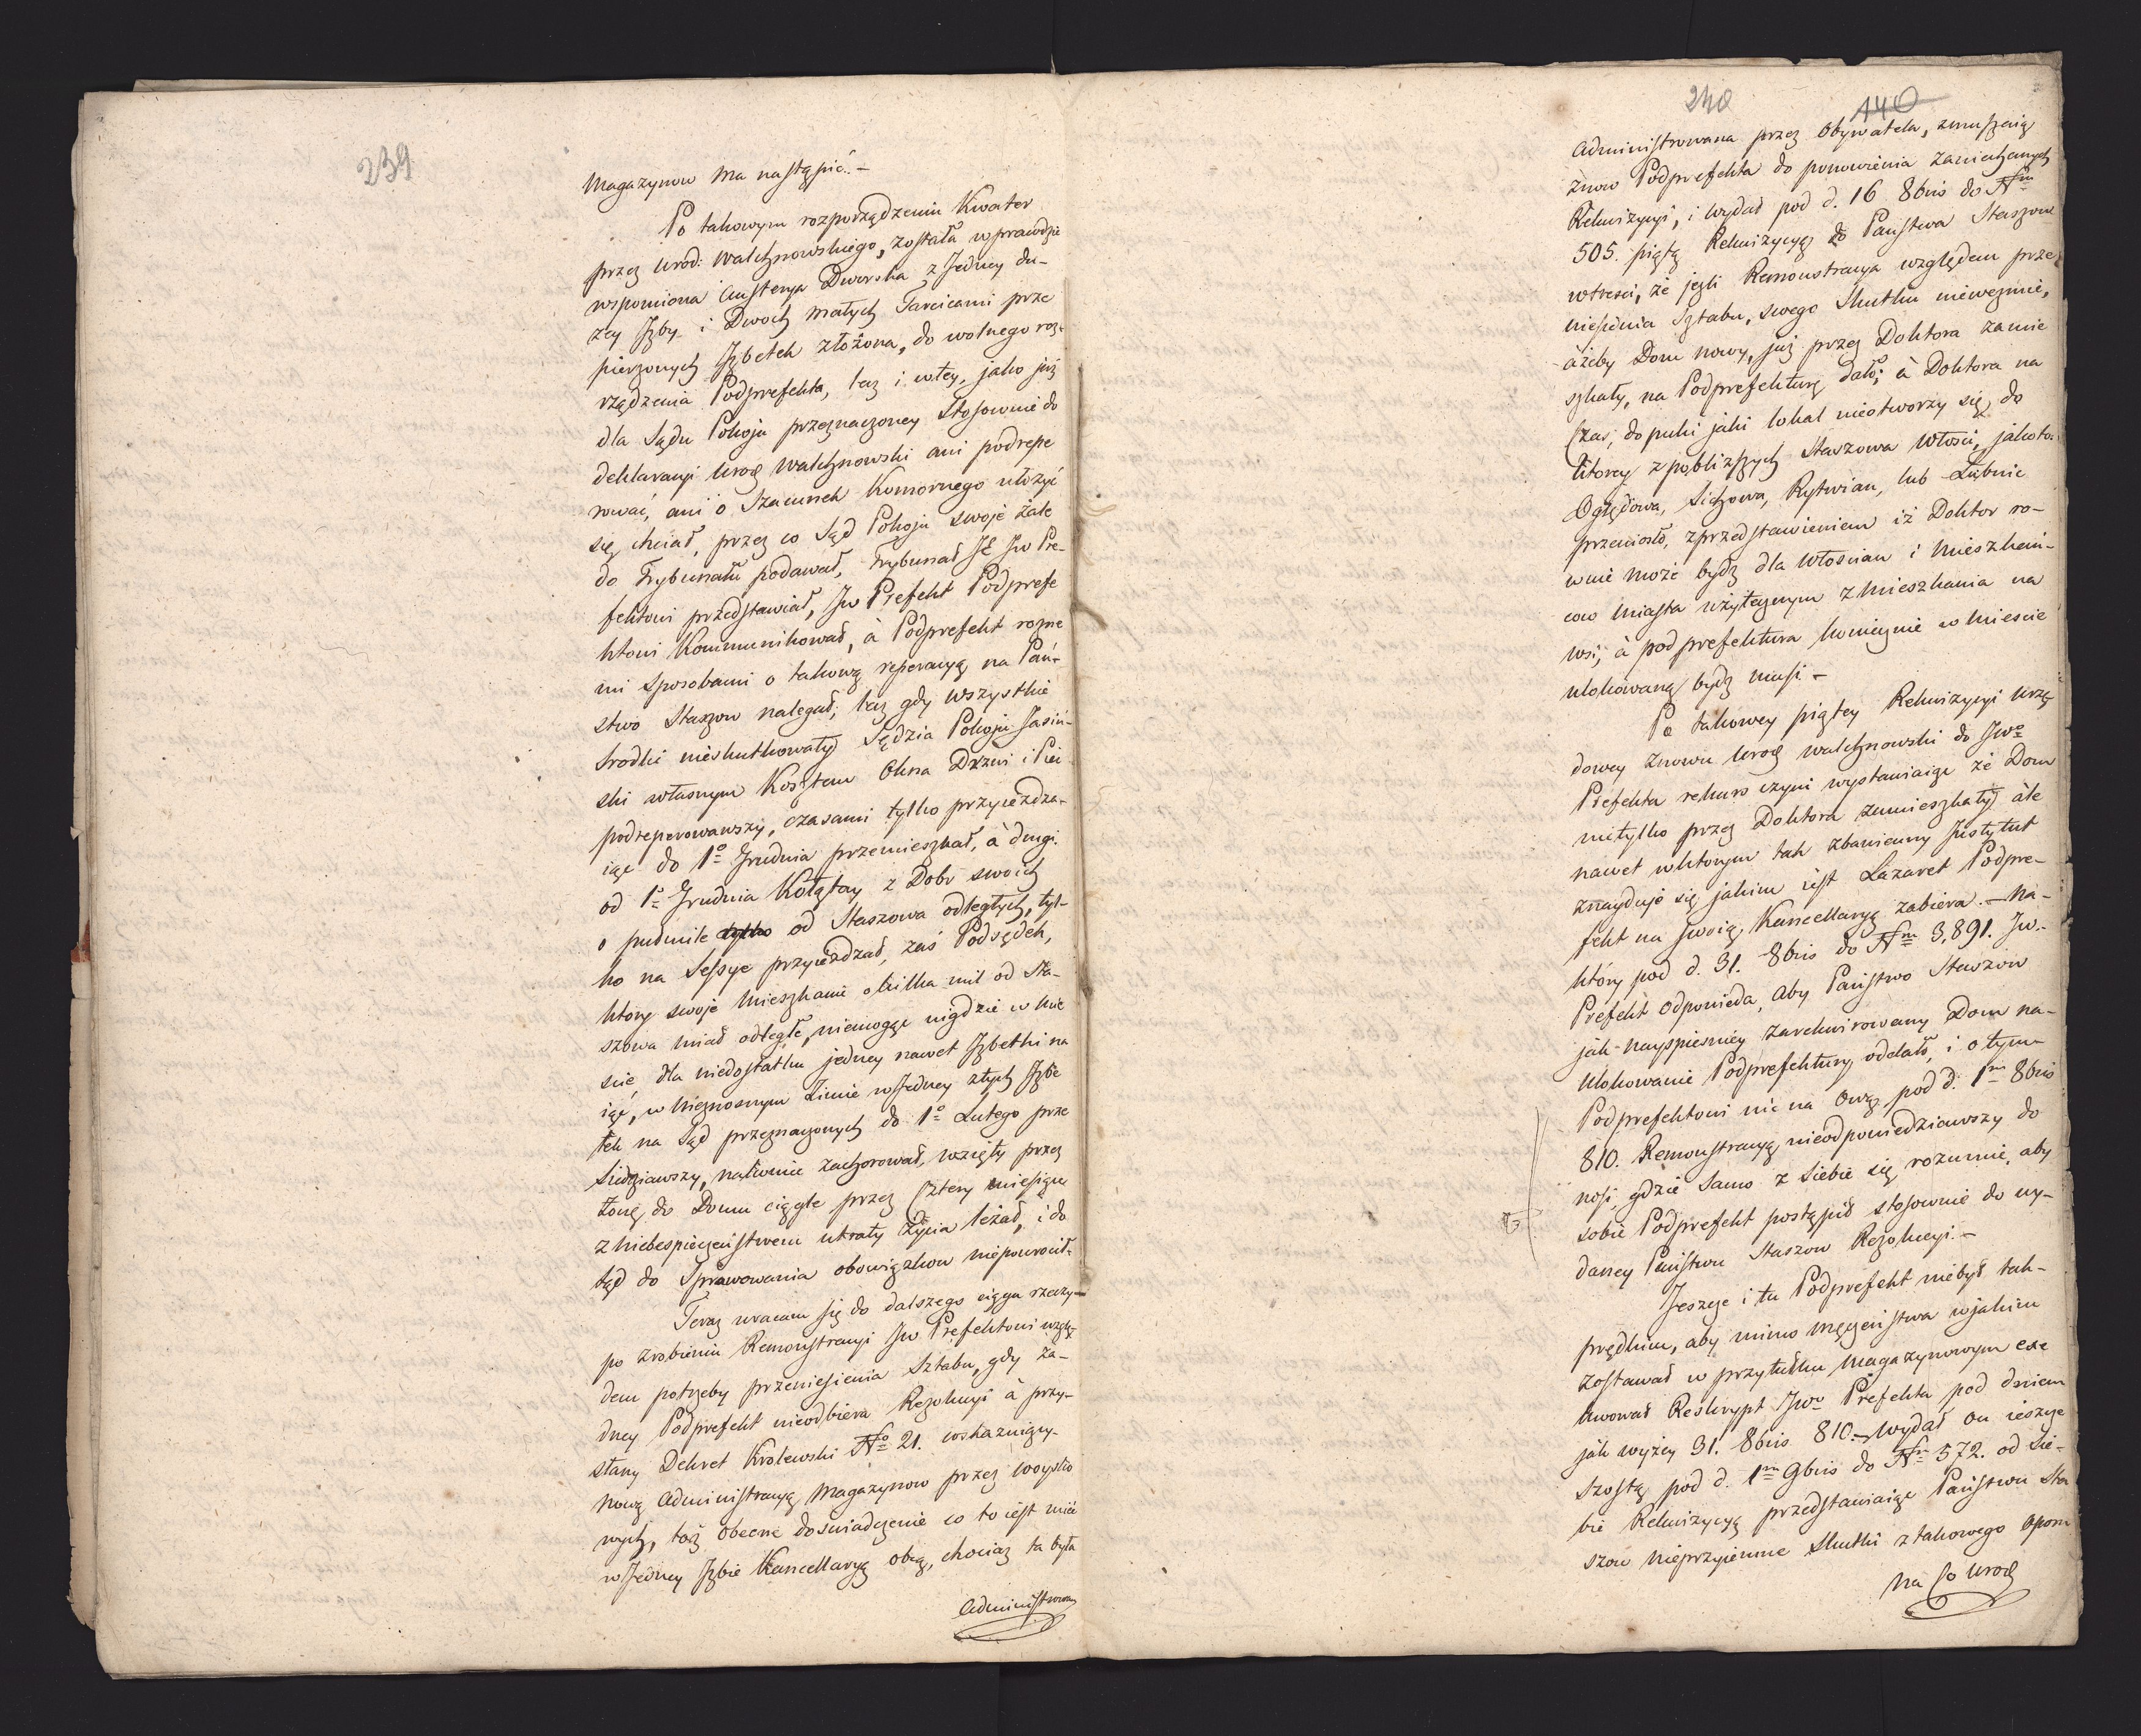 239
Magazynow ma nastąpić. –
Po takowym rozporządzeniu Kwater
przez Urod: Walchnowskiego, została wprawdzie
wspomiona Austerya Dworska z Jedney du-
zey Jzby i Dwoch małych Tarcicami prze
pierzonych Jzbetek złożona, do wolnego roz-
rządzenia Podprefekta, lecz i wtey, jako już
dla Sądu Pokoju przeznaczoney stosownie do
deklaracyi Urod Walchnowski ani podrepe
rować, ani o Szacunek Komornego ułożyć
się chciał, przez co Sąd Pokoju swoje żale
do Trybunału podawał, Trybunał JE JW Pre-
fektowi przedstawiał, JW Prefekt Podprefe
ktowi Kommunikował, à Podprefekt rozne
mi sposobami o takową reperacyą na Pań-
stwo Staszow nalegał; lecz gdy wszystkie
srodki nieskutkowały Sędzia Pokoju Jasiń-
ski własnym Kosztem Okna Drzwi i Piec
podreperowawszy, czasami tylko przyieżdza-
iąc do 1o Grudnia przemieszkał, à drugi
od 1o Grudnia Kołątay z Dobr swoich
o pułmile tylko od Staszowa odległych, tyl-
ko na Sessye przyieżdzał, zaś Podsędek,
ktory swoje Mieszkanie o kilka mil od Sta-
szowa miał odległe, niemogąc nigdzie w Mie
scie, dla niedostatku jedney nawet Jzbetki na
iąć, w nieznosnym Zimie w Jedney z tych Jzbe
tek na Sąd przeznaczonych do 1o Lutego prze
siedziawszy, nałownie zachorował, wzięty przez
żonę do Domu ciągle przez Cztery miesiące
z niebespieczeństwem utraty życia leżał, i do
tąd do Sprawowania obowiązkow niepowrocił.
Teraz wracam się do dalszego ciągu rzeczy –
po zrobieniu Remonstracyi JW Prefektowi wzglę-
dem potrzeby przeniesienia Sztabu, gdy ża-
dney Podprefekt nieodbiera Rezolucyi à przy-
słany Dekret Krolewski No 21. wskazuiący
nową administracyą Magazynow przez woysko
wych, toż obecne doswiadczenie co to iest mieć
w Jedney Jzbie Kancellaryą obcą, chociaz ta była
Administrowana
240
140
Administrowana przez Obywatela, zmuszaią
znow Podprefekta do ponowienia zaniechanych
Rekwizycyi, i wydał pod d. 16 8bris do Nrm
505. piątą Rekwizycyą do Państwa Staszow
wtresci, że jezli Remonstracya względem prze
niesienia Sztabu, swego Skutku niewezmie,
ażeby Dom nowy, już przez Doktora zamie
szkały, na Podprefekturę dało; à Doktora na
Czas, dopuki jaki lokal nieotworzy się, do
ktorey z pobliższych Staszowa Włosci, jakoto:
Oględowa, Sichowa, Rytwian, lub Łubnic
przeniosło, z przedstawieniem iż Doktor ro-
wnie może bydź dla Włoscian i Mieszkań-
cow Miasta użytecznym z Mieszkania na
wsi; à podprefektura koniecznie w Miescie
ulokowaną bydź musi –
Po takowey piątey Rekwizycyi Urzę
dowey znowu Urod Walchnowski do JWo
Prefekta rekurs czyni wystawiaiąc że Dom
nietylko przez Doktora zamieszkały ale
nawet wktorym tak zbawienny Jnstytut
znayduje się jakim iest Lazaret Podpre-
fekt na swoią Kancellaryą zabiera. – Na-
który pod d. 31. 8bris do Nrm 3,891. JW.
Prefekt odpowieda, aby Państwo Staszow
jak-nayspieszniey zarekwirowany Dom na-
Ulokowanie Podprefektury oddało, i o tym
Podprefektowi nic na ową pod d. 1m 8bris
810. Remonstracyą nieodpowiedziawszy do
nosi, gdzie samo z siebie się rozumie, aby
sobie Podprefekt postąpił stosownie do wy-
daney Państwu Staszow Rezolucyi. –
Jeszcze i tu Podprefekt niebył tak-
prędkim, aby mimo męczeństwa wjakim
zostawał w przytułku Magazynowym exe
kwował Reskrypt JWo Prefekta pod dniem
jak wyżey 31. 8bris 810. – Wydał on ieszcze
szostą pod d. 1m 9bris do Nrm 572. od sie-
bie Rekwizycyą przedstawiaiąc Państwu Sta
szow nieprzyiemne skutki z takowego oporu
na Co Urod